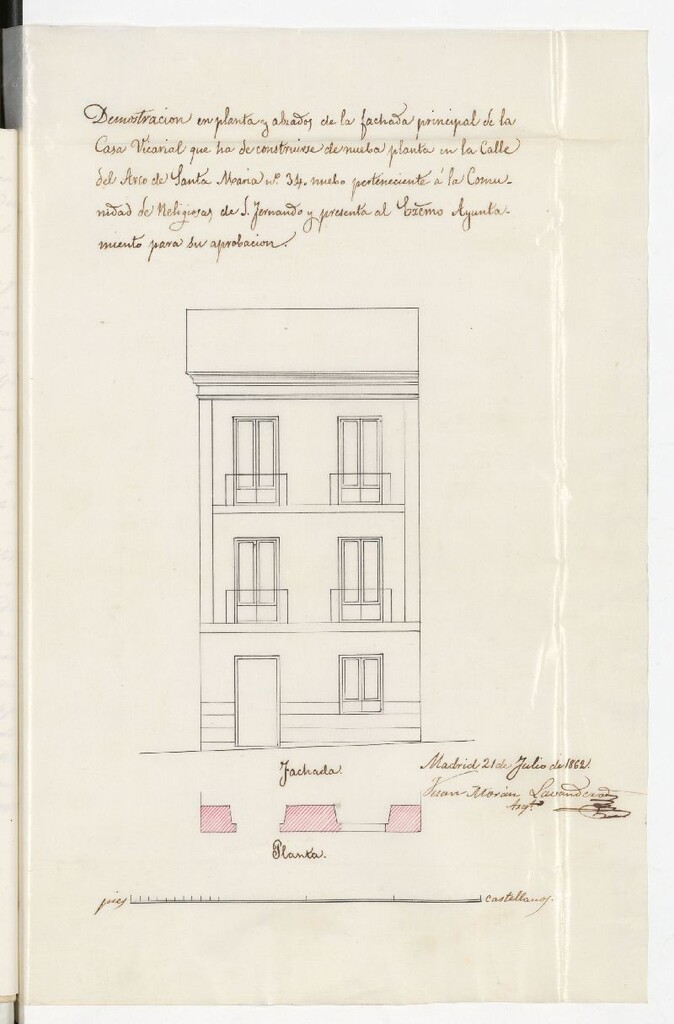 Demostracion en planta y alzados de la fachada principal de la
Casa Vicarial que ha de construirse de nueba planta en la Calle
del Arco de Santa Maria nº 34. nuebo perteneciente á la Comu-
nidad de Religiosas de S. Fernando y presenta al Excmo Ayunta-
miento para su aprobacion.
Fachada.
Madrid 21 de Julio de 1862.
Juan Morán Lavandera
Arqto
Planta.
pies castellanos.